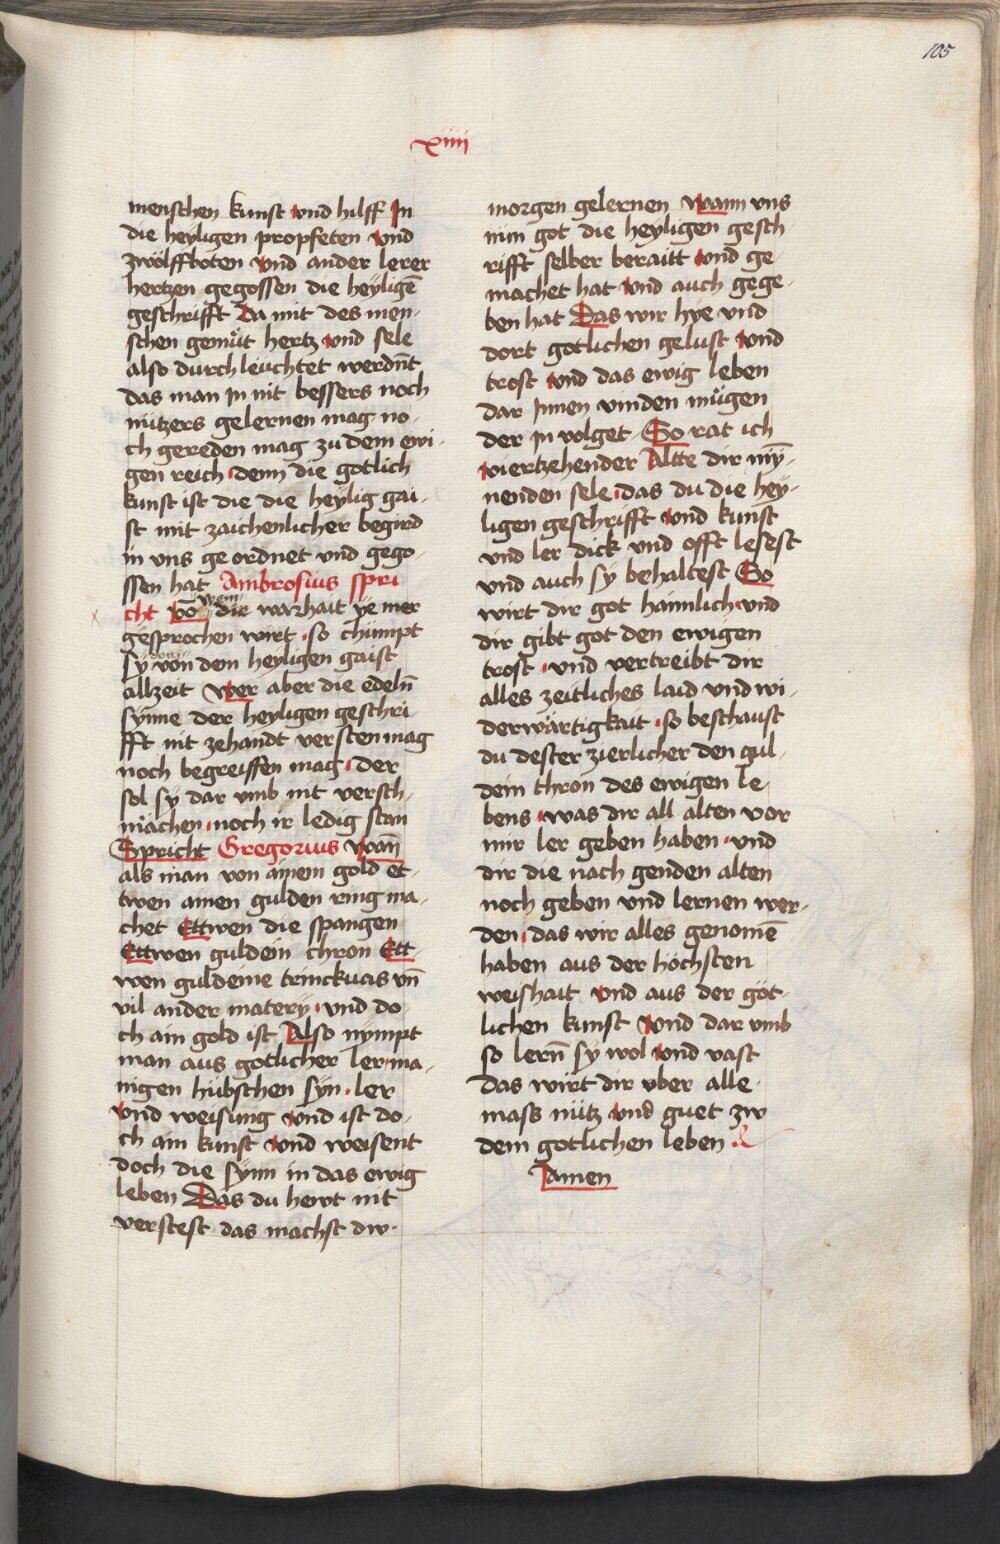 105
xiiii
menschen kunst vnd hilff Jn
die heyligen propfeten vnd
zwölffboten vnd ander lerer
hertzen gegossen die heyligē
geschrifft Da mit des men-
schen gemüt hertz vnd sele
also durch leuchtet werdn̄t
das man jn nit bessers noch
nützers gelernen mag no-
ch gereden mag zu dem ewi-
gen reich denn die gotlich
kunst ist die die heylig gai-
st mit zaichenlicher begird
in vns ge ordnet vnd gego-
ssen hat Ambrosius spri
cht vō wem dir warhait ye mer
gesprochen wirt so chümpt
sy von dem heyligen gaist
allzeit Wer aber die edeln̄
synne der heyligen geschri-
fft nit zehandt versten mag
noch begreiffen mag der
sol sy dar vmb nit versch-
mächen noch ir ledig stan
Spricht Gregorius wan̄
als man von ainem gold et-
twen ainen gulden ring ma-
chet Ettwen die spangen
Ettwen guldein chron Ett-
wen guldeine trinckuas vn̄
vil ander matery vnd do-
ch ain gold ist Also nympt
man aus gotlicher ler ma-
nigen hübschen syn ler
vnd weisung vnd ist do-
ch ain kunst vnd weisent
doch die synn in das ewig
leben Das du hewt nit
verstest das machst dw
morgen gelernen wann vns
nim got die heyligen gesch
rifft selber beraitt vnd ge
machet hat vnd auch gege-
ben hat Das wir hye vnd
dort gotlichen gelust vnd
trost vnd das ewig leben
dar Jnnen vinden mügen
der jn volget So rat ich
viertzehender Altte dir mȳ-
nenden sele das du die hey-
ligen geschrifft vnd kunst
vnd ler dick vnd offt lesest
vnd auch sy behaltest So
wirt dir got haimlich vnd
dir gibt got den ewigen
trost vnd vertreibt dir
alles zeitliches laid vnd wi-
derwärtigkait so beschaust
du dester zierlicher den gul-
dein thron des ewigen le-
bens was dir all alten vor
mir ler geben haben vnd
dir die nach genden alten
noch geben vnd lernen wer-
den das wir alles genomē
haben aus der höchsten
weishait vnd aus der göt-
lichen kunst vnd dar vmb
so lern̄ sy wol vnd vast
das wirt dir vber alle
mass nütz vnd guet zw
dem gotlichen leben
Amen